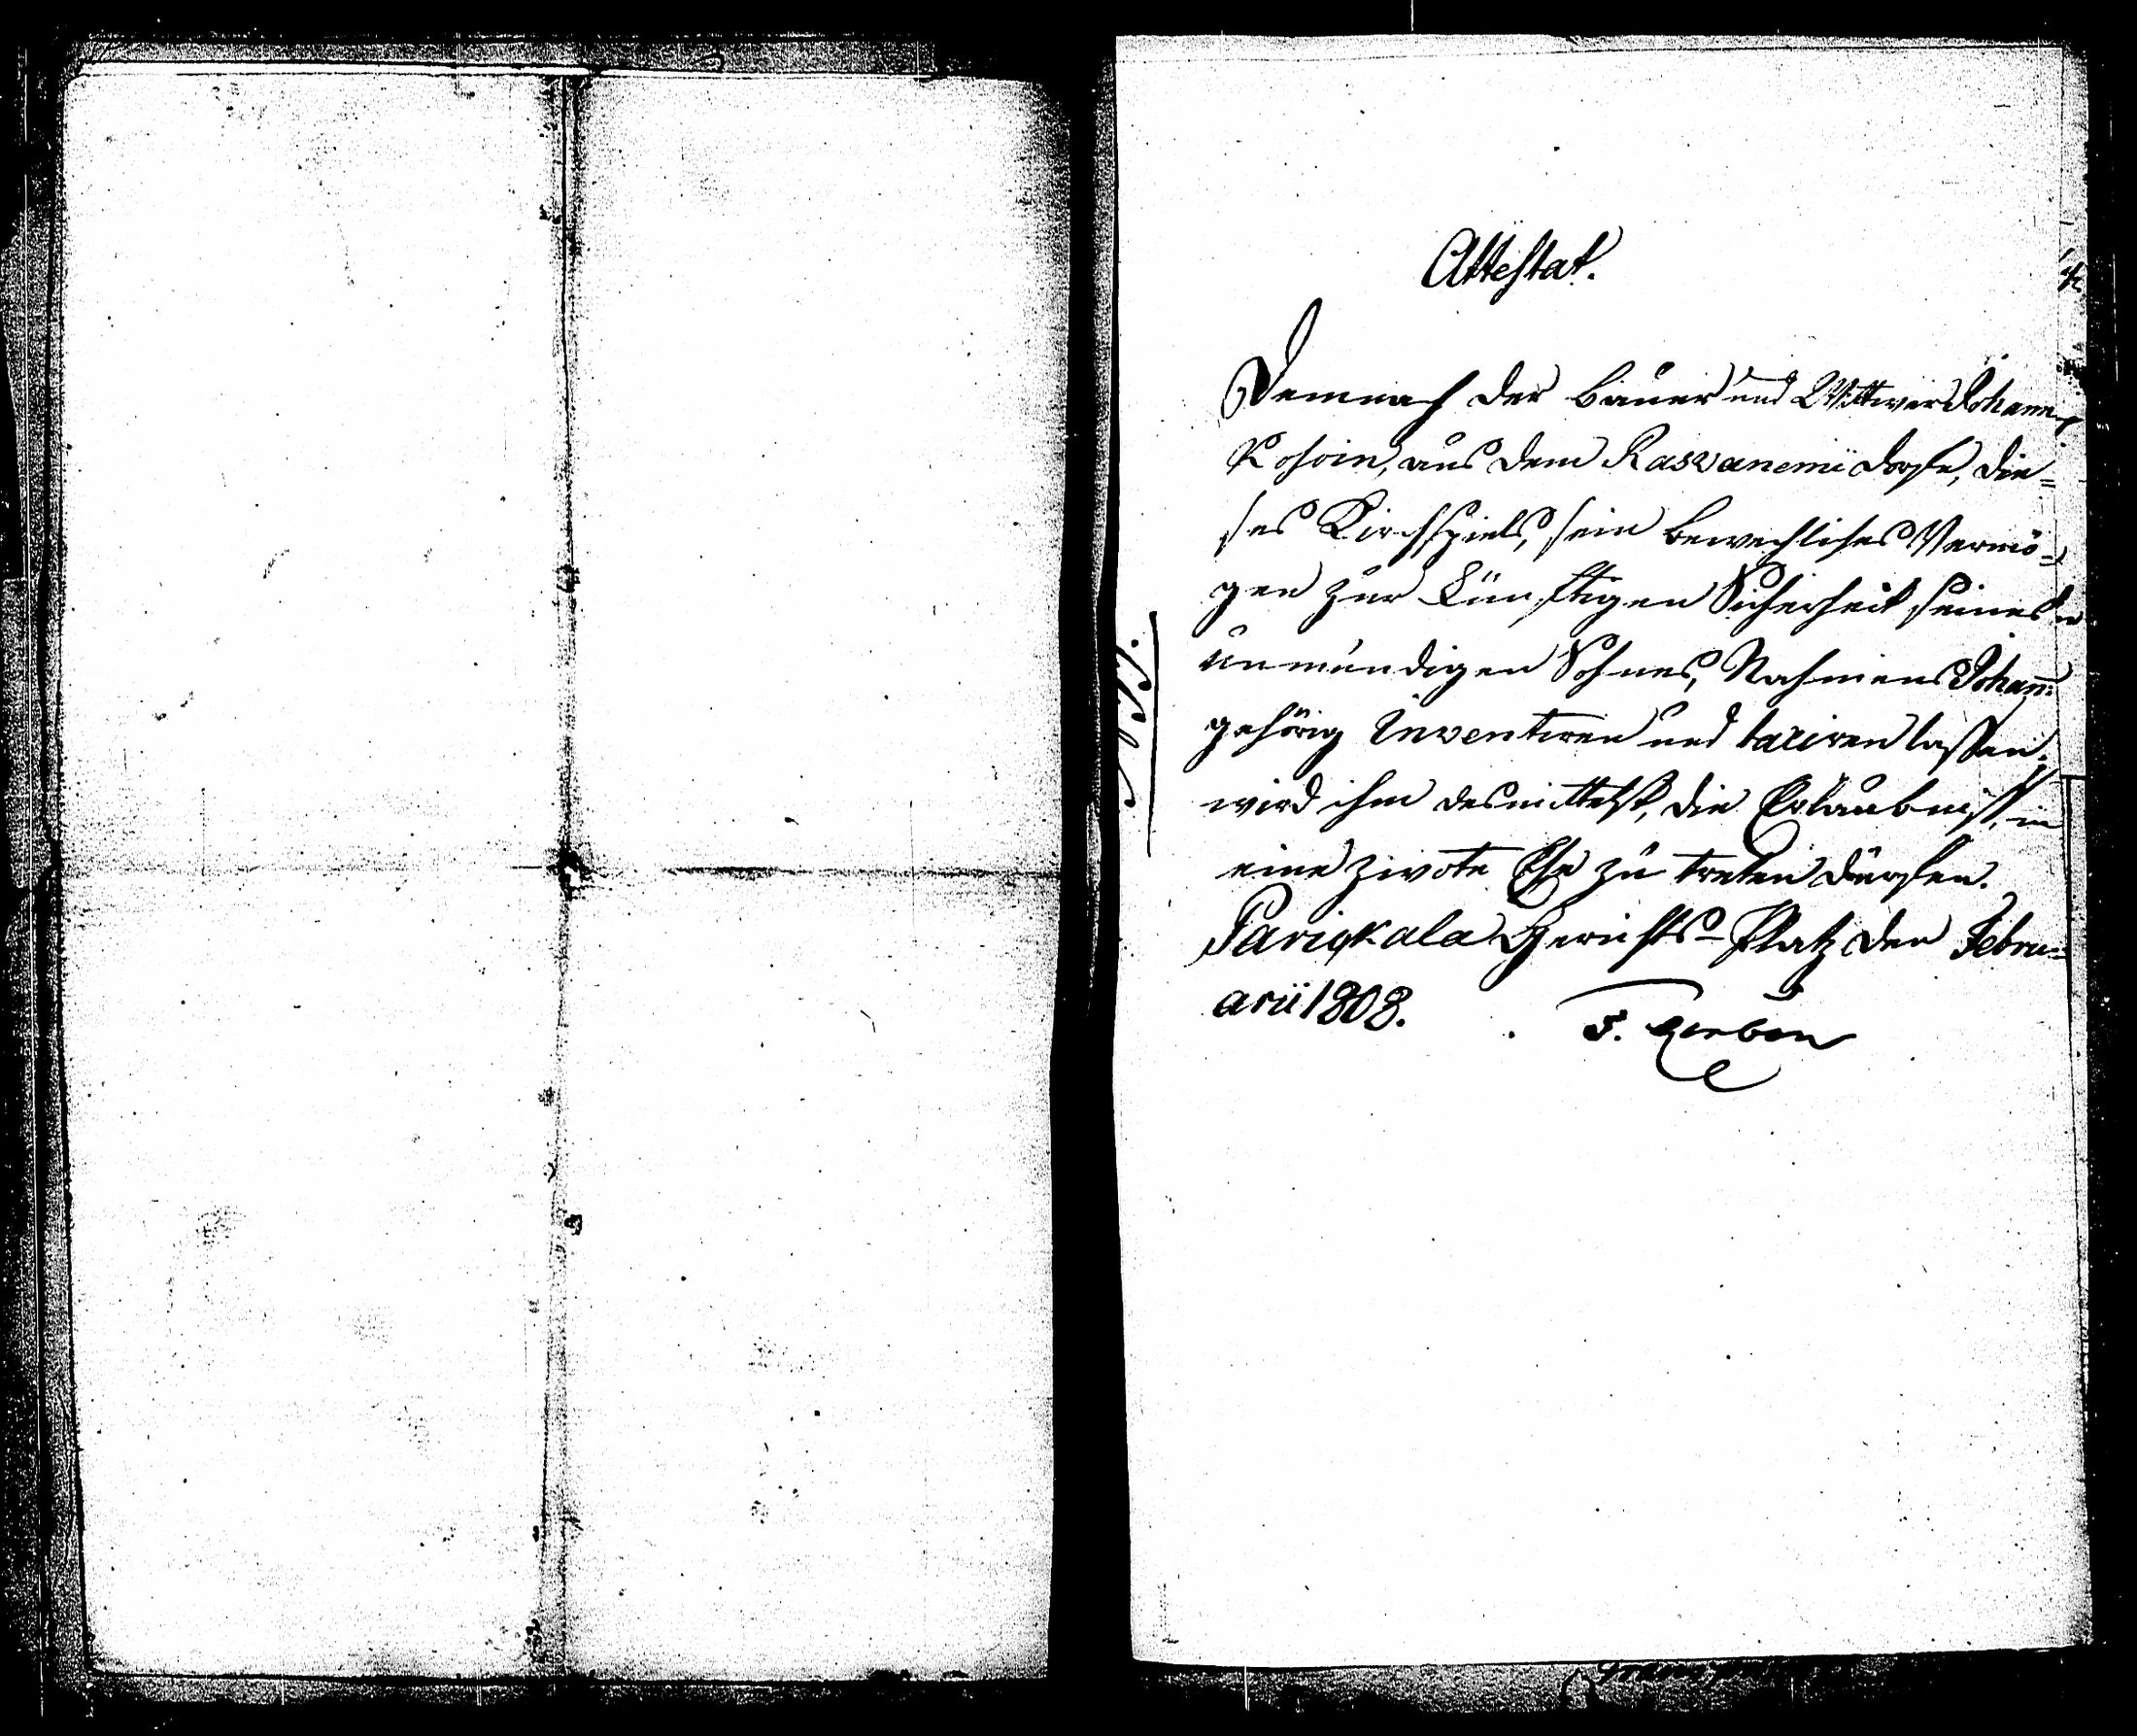 Attestat.
Demnach der Bauer und Wittwer Johann
Kohoin, aus dem Rasvaniemi dorfe, die=
ses Kirchspiels, sein bewechliches Vermö=
gen zur künftigen Sicherheit seines
unmündigen Sohnes, Nahmens Johan̄
gehörig Inventiren und taxiren lassen,
wird ihm desmittelst, die Erlaubniss, in
eine zwote Ehe zu treten dürfen.
Parikkala Gerichts-Platz den Febru=
arii 1808.
F. Gerbon